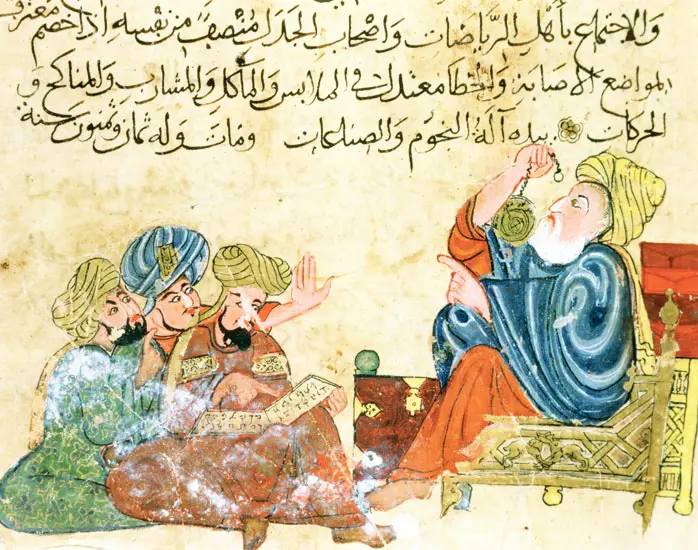 والاجتماع باهل الرياضات واصحاب الجدل منصفا من نفسه اذا خصم معترف
لمواضع الاصابة والخطا معتدل في الملابس والمأكل والمشارب والمناكح و
الحركات بيده آلة النجوم والصناعات ومات وله ثمان سنة